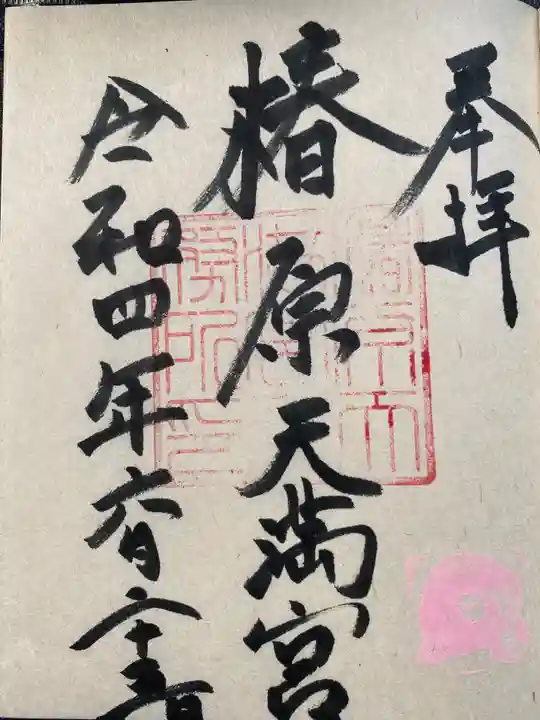 奉拝
椿原天満宮
令和四年六月二十三日